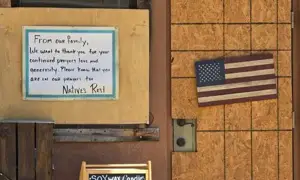 From our family,
We want to thank you for your
continued prayers love and
generosity. Please know that you
are in our prayers too
Natives Rest
SOY WAX Candles